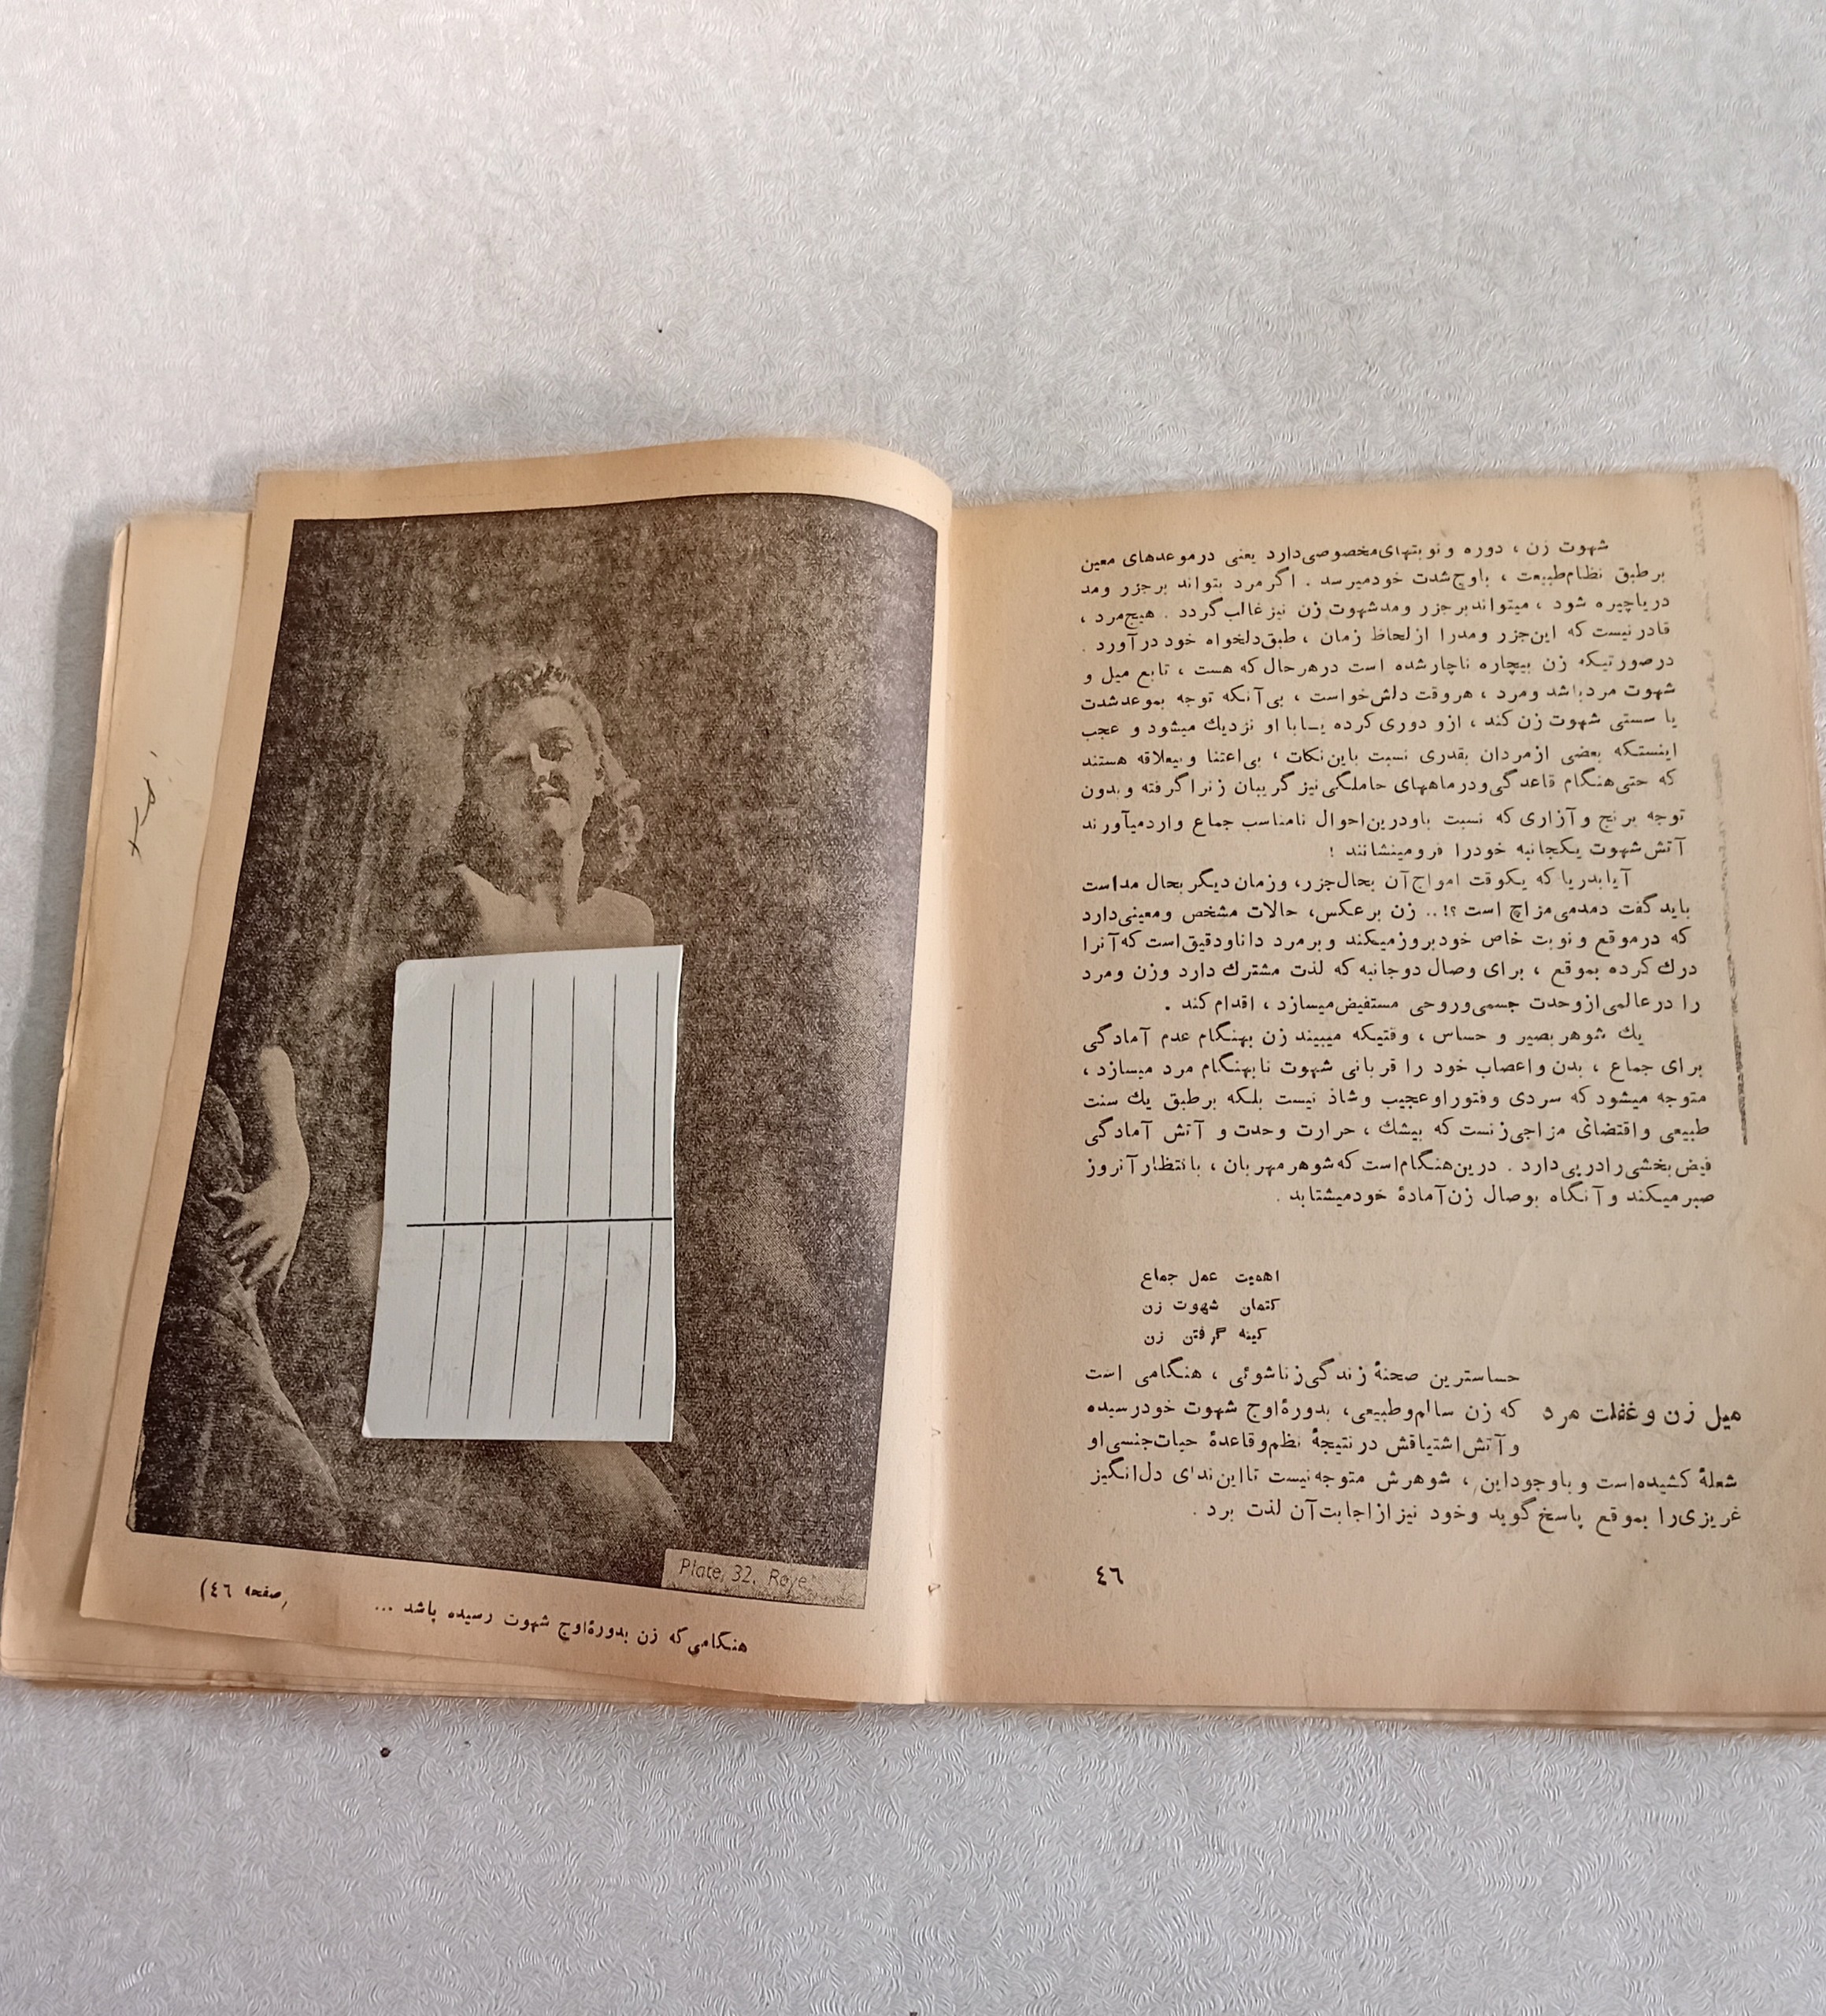 شهوت زن ، دوره و نوبتهای‌مخصوصی‌دارد یعنی درموعدهای معین
بر طبق نظام‌طبیعت ، باوج‌شدت خودمیرسد . اگر مرد بتواند بر جزر ومد
دریاچیره شود ، میتواندبر جزر ومدشهوت زن نیز غالب‌گردد . هیچ‌مرد ،
قادرنیست که این‌جزر ومدرا ازلحاظ زمان ، طبق‌دلخواه خود درآورد .
درصورتیکه زن بیچاره ناچارشده است درهرحال که هست ، تابع میل و
شهوت مردباشد ومرد ، هروقت دلش‌خواست ، بی‌آنکه توجه بموعدشدت
یا سستی شهوت زن کند ، ازو دوری کرده یـابا او نزدیك میشود و عجب
اینستکه بعضی ازمردان بقدری نسبت باین‌نکات ، بی‌اعتنا وبیعلاقه هستند
که حتی‌هنگام قاعدگی‌ودرماههای حاملگی‌نیز گریبان زنراگرفته وبدون
توجه برنج وآزاری‌که نسبت باودرین‌احوال نامناسب جماع واردمیآورند
آتش‌شهوت یکجانبه خودرا فرومینشانند !
آیابدریا که یکوقت امواج‌آن بحال‌جزر، وزمان دیگر بحال مداست
باید گفت دمدمی‌مزاج است ؟! .. زن برعکس، حالات مشخص ومعینی‌دارد
که درموقع ونوبت خاص خودبروزمیکند وبرمرد داناودقیق‌است که آنرا
درك کرده بموقع ، برای وصال دوجانبه که لذت مشترك دارد وزن ومرد
را درعالمی‌ازوحدت جسمی‌وروحی مستفیض‌میسازد ، اقدام کند .
یك شوهر بصیر و حساس ، وقتیکه میبیند زن بهنگام عدم آمادگی
برای جماع ، بدن واعصاب خود را قربانی شهوت نابهنگام مرد میسازد ،
متوجه میشود که سردی وفتوراوعجیب وشاذ نیست بلکه برطبق یك سنت
طبیعی واقتضای مزاجی‌زنست که بیشك ، حرارت وحدت و آتش آمادگی
فیض‌بخشی‌رادرپی‌دارد . درین‌هنگام‌است که شوهرمهربان ، بانتظارآنروز
صبرمیکند وآنگاه بوصال زن‌آمادهٔ خودمیشتابد .
اهمیت عمل جماع
کتمان شهوت زن
کینه گرفتن زن
میل زن و غفلت مرد
حساسترین صحنهٔ زندگی‌زناشوئی ، هنگامی است
که زن سالم‌وطبیعی، بدورهٔ‌اوج شهوت خودرسیده
وآتش‌اشتیاقش درنتیجهٔ نظم‌وقاعدهٔ حیات‌جنسی‌او
شعلهٔ کشیده‌است و باوجوداین ، شوهرش متوجه‌نیست تااین‌ندای دل‌انگیز
غریزی‌را بموقع پاسخ‌گوید وخود نیزازاجابت‌آن لذت برد .
٤٦
Plate, 32.
هنگامی‌که زن بدورهٔ‌اوج شهوت رسیده باشد ...
(صفحه ٤٦)